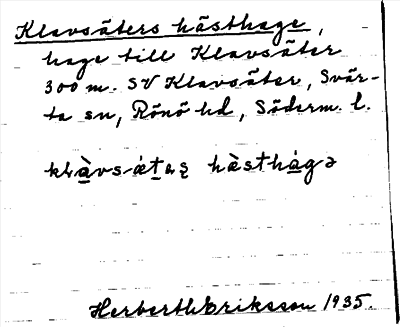 Klavsäters hästhage,
hage till Klavsäter
300 m. SV Klavsäter, Svär-
ta sn, Rönö hd, Söderm. l.
hästhàgə
Herbert Eriksson 1935.